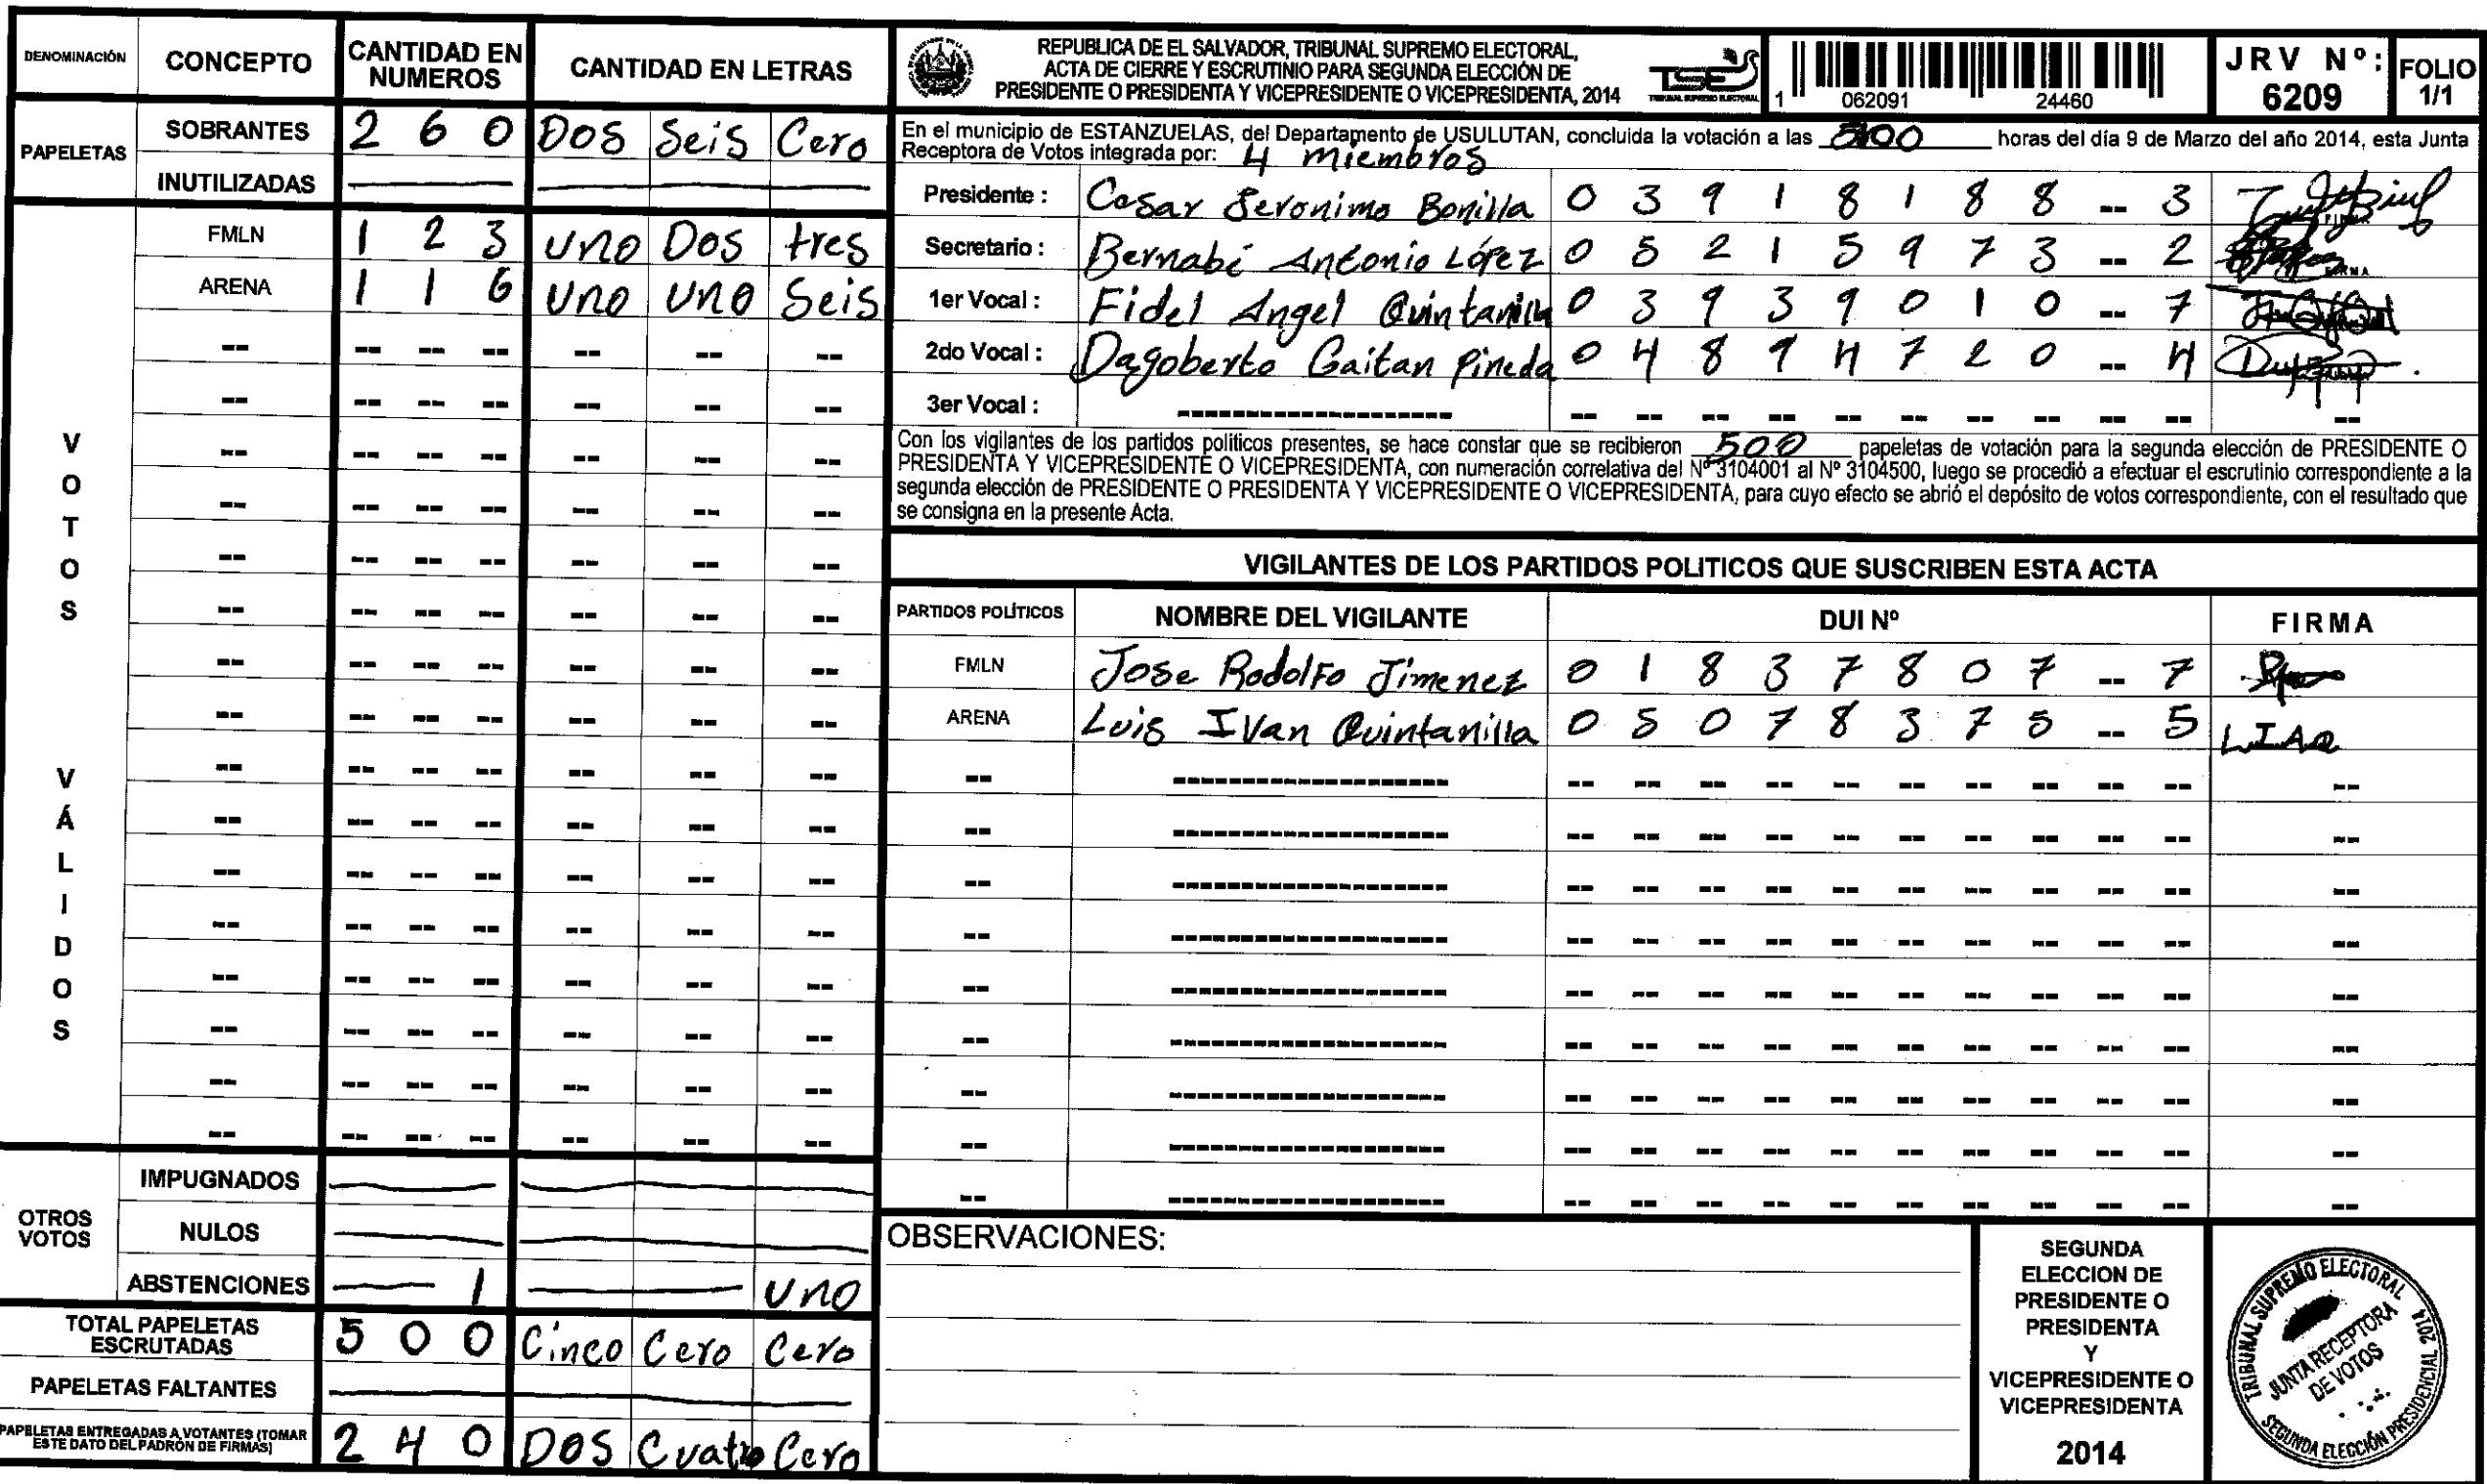 DENOMINACIÓN CONCEPTO CANTIDAD EN NUMEROS CANTIDAD EN LETRAS
PAPELETAS
SOBRANTES 2 6 0 Dos Seis Cero
INUTILIZADAS
VOTOS VÁLIDOS
FMLN 1 2 3 uno Dos tres
ARENA 1 1 6 uno uno Seis
OTROS VOTOS
IMPUGNADOS
NULOS
ABSTENCIONES 1 uno
TOTAL PAPELETAS ESCRUTADAS 5 0 0 Cinco Cero Cero
PAPELETAS FALTANTES
PAPELETAS ENTREGADAS A VOTANTES (TOMAR ESTE DATO DEL PADRÓN DE FIRMAS) 2 4 0 Dos Cuatro Cero
REPUBLICA DE EL SALVADOR, TRIBUNAL SUPREMO ELECTORAL,
ACTA DE CIERRE Y ESCRUTINIO PARA SEGUNDA ELECCIÓN DE
PRESIDENTE O PRESIDENTA Y VICEPRESIDENTE O VICEPRESIDENTA, 2014
TSE
TRIBUNAL SUPREMO ELECTORAL
1 062091 24460
JRV Nº: 6209
FOLIO 1/1
En el municipio de ESTANZUELAS, del Departamento de USULUTAN, concluida la votación a las horas del día 9 de Marzo del año 2014, esta Junta
Receptora de Votos integrada por: 4 miembros
Presidente : Cesar Jeronimo Bonilla 0 3 9 1 8 1 8 8 -- 3
Secretario : Bernabé Antonio López 0 5 2 1 5 9 7 3 -- 2
1er Vocal : Fidel Angel Quintanilla 0 3 9 3 9 0 1 0 -- 7
2do Vocal : Dagoberto Gaitan Pineda 0 4 8 9 4 7 2 0 -- 4
3er Vocal :
Con los vigilantes de los partidos politicos presentes, se hace constar que se recibieron 500 papeletas de votación para la segunda elección de PRESIDENTE O
PRESIDENTA Y VICEPRESIDENTE O VICEPRESIDENTA, con numeración correlativa del Nº 3104001 al Nº 3104500, luego se procedió a efectuar el escrutinio correspondiente a la
segunda elección de PRESIDENTE O PRESIDENTA Y VICEPRESIDENTE O VICEPRESIDENTA, para cuyo efecto se abrió el depósito de votos correspondiente, con el resultado que
se consigna en la presente Acta.
VIGILANTES DE LOS PARTIDOS POLITICOS QUE SUSCRIBEN ESTA ACTA
PARTIDOS POLÍTICOS NOMBRE DEL VIGILANTE DUI Nº FIRMA
FMLN Jose Rodolfo Jimenez 0 1 8 3 7 8 0 7 -- 7
ARENA Luis Ivan Quintanilla 0 5 0 7 8 3 7 5 -- 5 LIAQ
OBSERVACIONES:
SEGUNDA
ELECCION DE
PRESIDENTE O
PRESIDENTA
Y
VICEPRESIDENTE O
VICEPRESIDENTA
2014
TRIBUNAL SUPREMO ELECTORAL 2014
JUNTA RECEPTORA
DE VOTOS
SEGUNDA ELECCIÓN PRESIDENCIAL